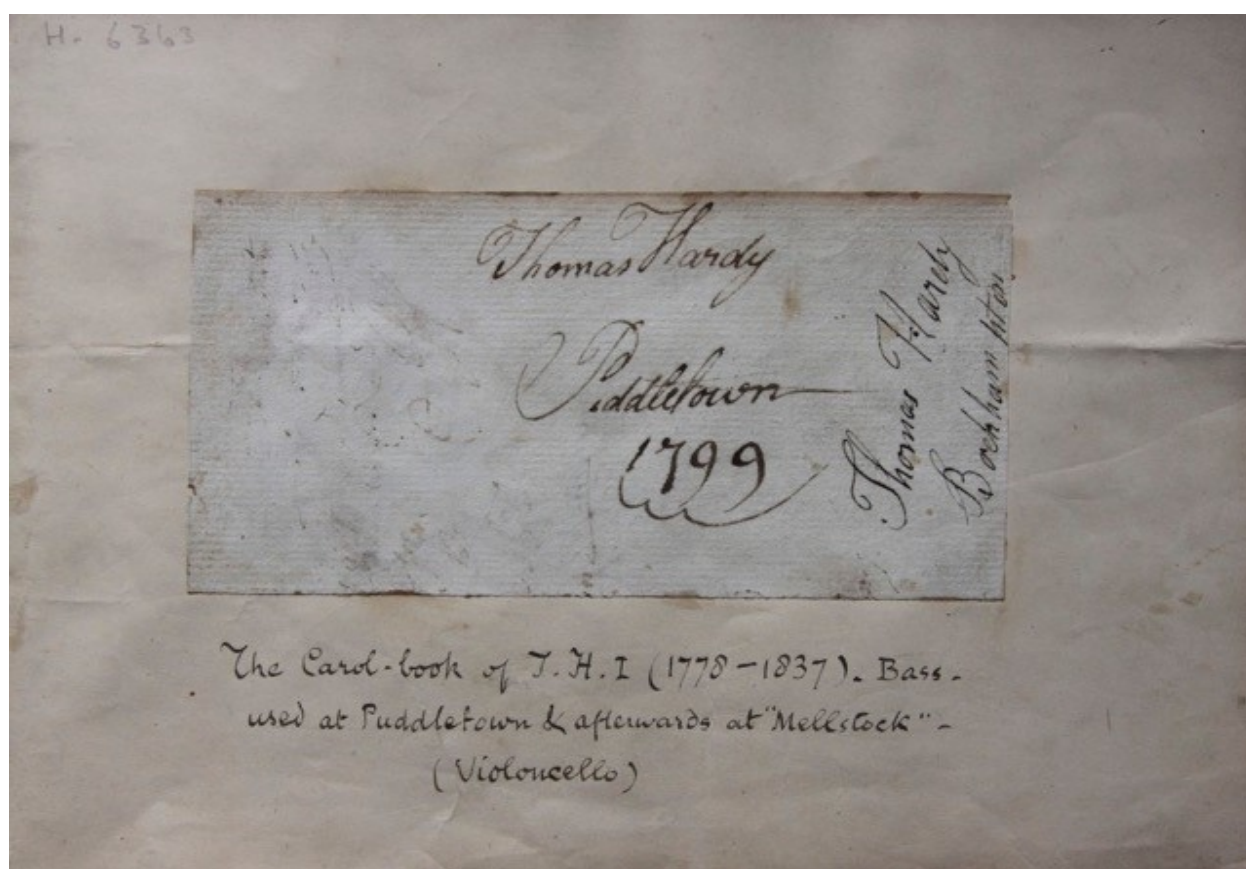 H. 6363
Thomas Hardy
Piddletown
1799
Thomas Hardy
Bockhampton
The Carol-book of T. H. I (1778-1837). Bass.
used at Puddletown & afterwards at "Mellstock" -
(Violoncello)